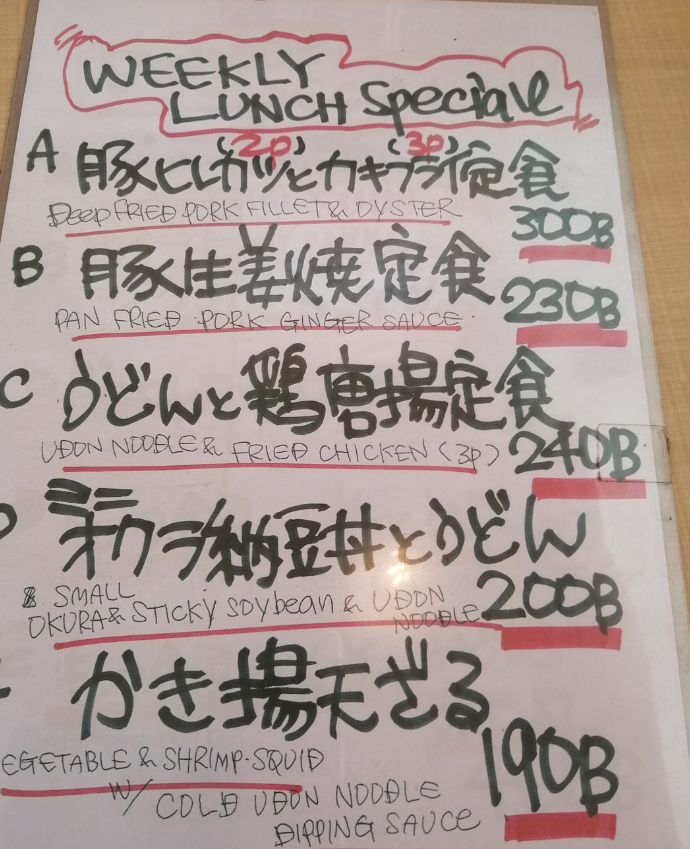 WEEKLY
LUNCH Speciale
A 豚ヒレカツ(2p)とカキフライ(3p)定食
DEEP FRIED PORK FILLET & OYSTER
300B
B 豚生姜焼定食
PAN FRIED PORK GINGER SAUCE
230B
C うどんと鶏唐揚定食
UDON NOODLE & FRIED CHICKEN (3p)
240B
ミニ
オクラ納豆丼とうどん
SMALL
OKURA & STICKY SOYbEAN & UDON
NOODLE
200B
かき揚天ざる
EGETABLE & SHRIMP·SQUID
W/ COLD UDON NOODLE
DIPPING SAUCE
190B